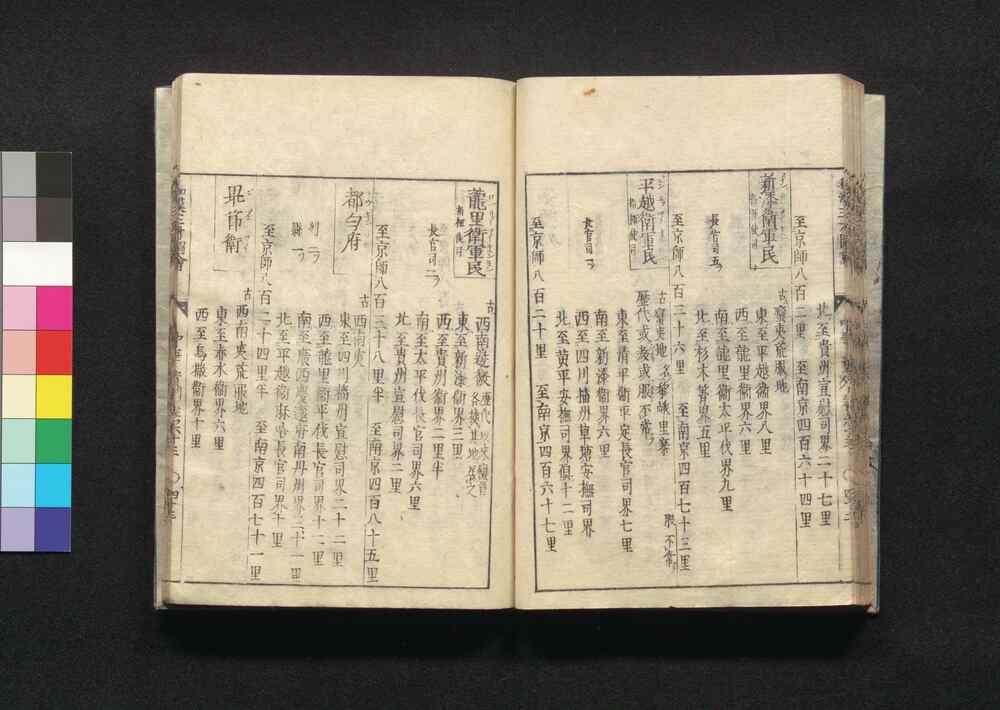 北至貴州宣慰司界二十七里
至京師八百二里 至南京四百六十四里
新添衛軍民
指揮使司
長官司五
古蠻夷荒服地
東至平越衛界八里
西至龍里衛界六里
南至龍里衛太平伐界九里
北至杉木箐界五里
至京師八百二十六里 至南京四百七十三里
平越衛軍民
指揮使司
長官司一
古蠻夷地
歷代或叛或服不常
東至清平衛平定長官司界七里
南至新添衛界六里
西至四川播州草塘安撫司界
北至黃平安撫司界俱十二里
至京師八百二十里 至南京四百六十七里
龍里衛軍民
指揮使司
長官司二
古西南邊徼
東至新添衛界三里
西至貴州衛界二里半
南至太平伐長官司界六里
北至貴州宣慰司界二里
至京師八百三十八里半 至南京四百八十五里
都匀府
州二
縣一
古西南夷
東至四川播州宣慰司界二十二里
西至龍里衛平伐長官司界十一里
南至廣西慶遠府南丹州界二十一里
北至平越衛麻哈長官司界十里
至京師八百二十四里半 至南京四百七十一里
畢節衛
古西南夷荒服地
東至赤水衛界六里
西至烏撒衛界十里